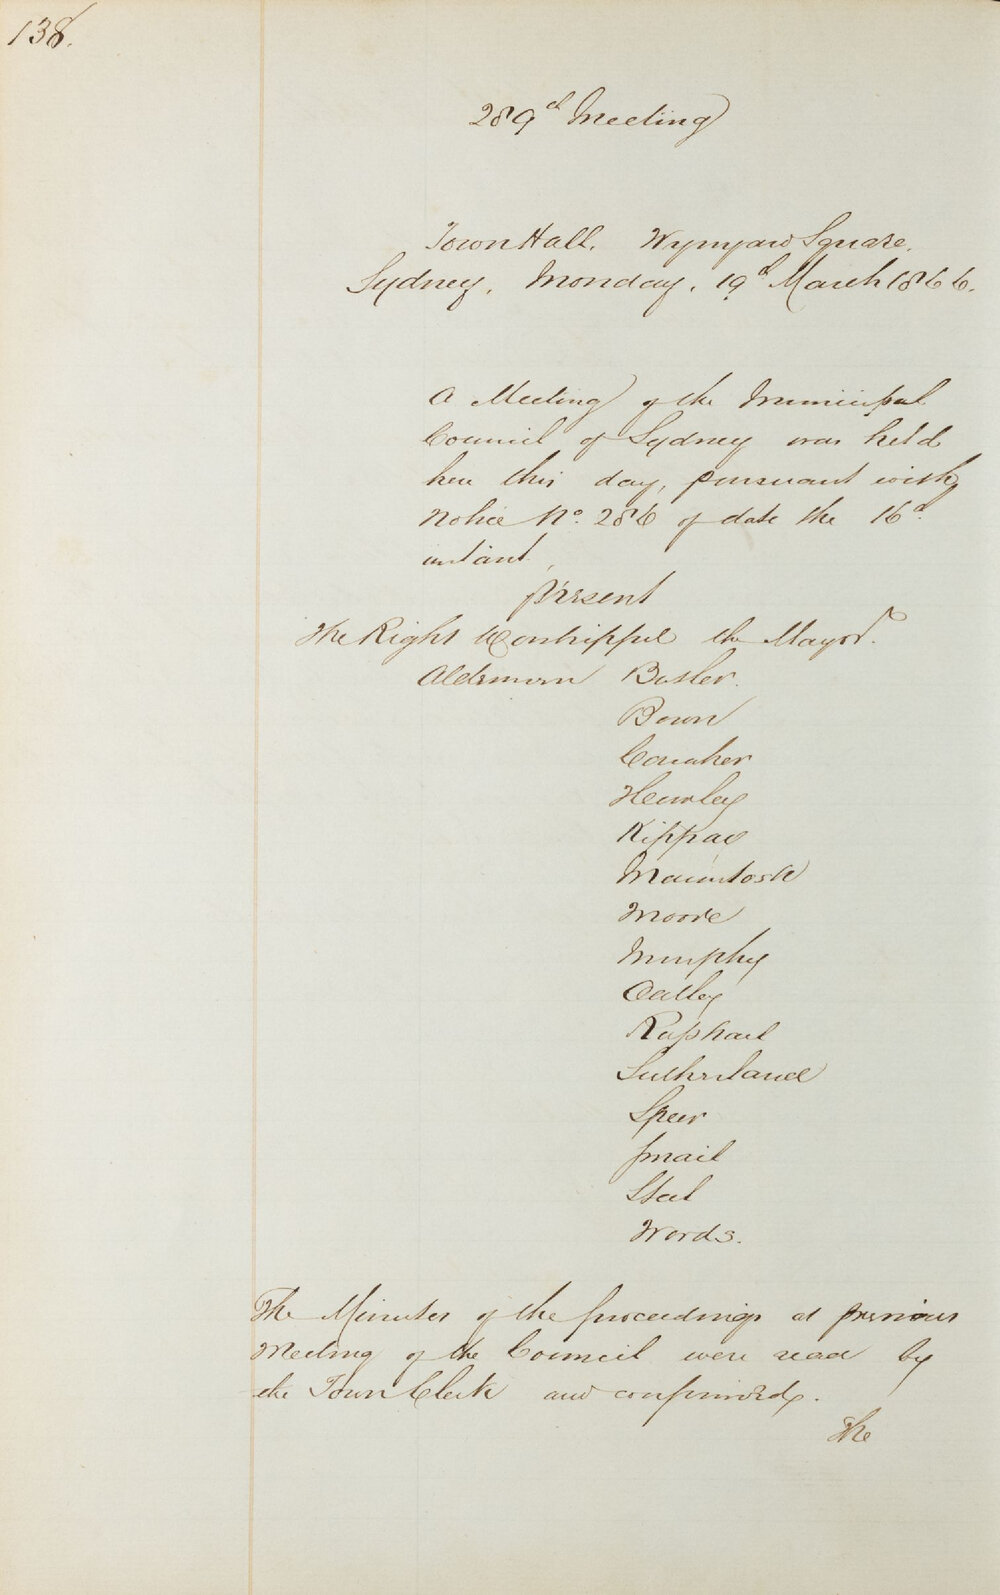 138.
289th Meeting
Town Hall. Wynyard Square.
Sydney, Monday, 19th March 1866.
A Meeting of the Municipal
Council of Sydney was held
here this day, pursuant with
Notice No. 286 of date the 16th
instant
Present
The Right Worshipful the Mayor.
Aldermen Butler.
Bown
Caraher
Hurley
Kippax
Macintosh
Moore
Murphy
Oatley
Raphael
Sutherland
Speer
Smail
Steel
Woods.
The Minutes of the proceedings at previous
Meeting of the Council were read by
the Town Clerk and confirmed.
The